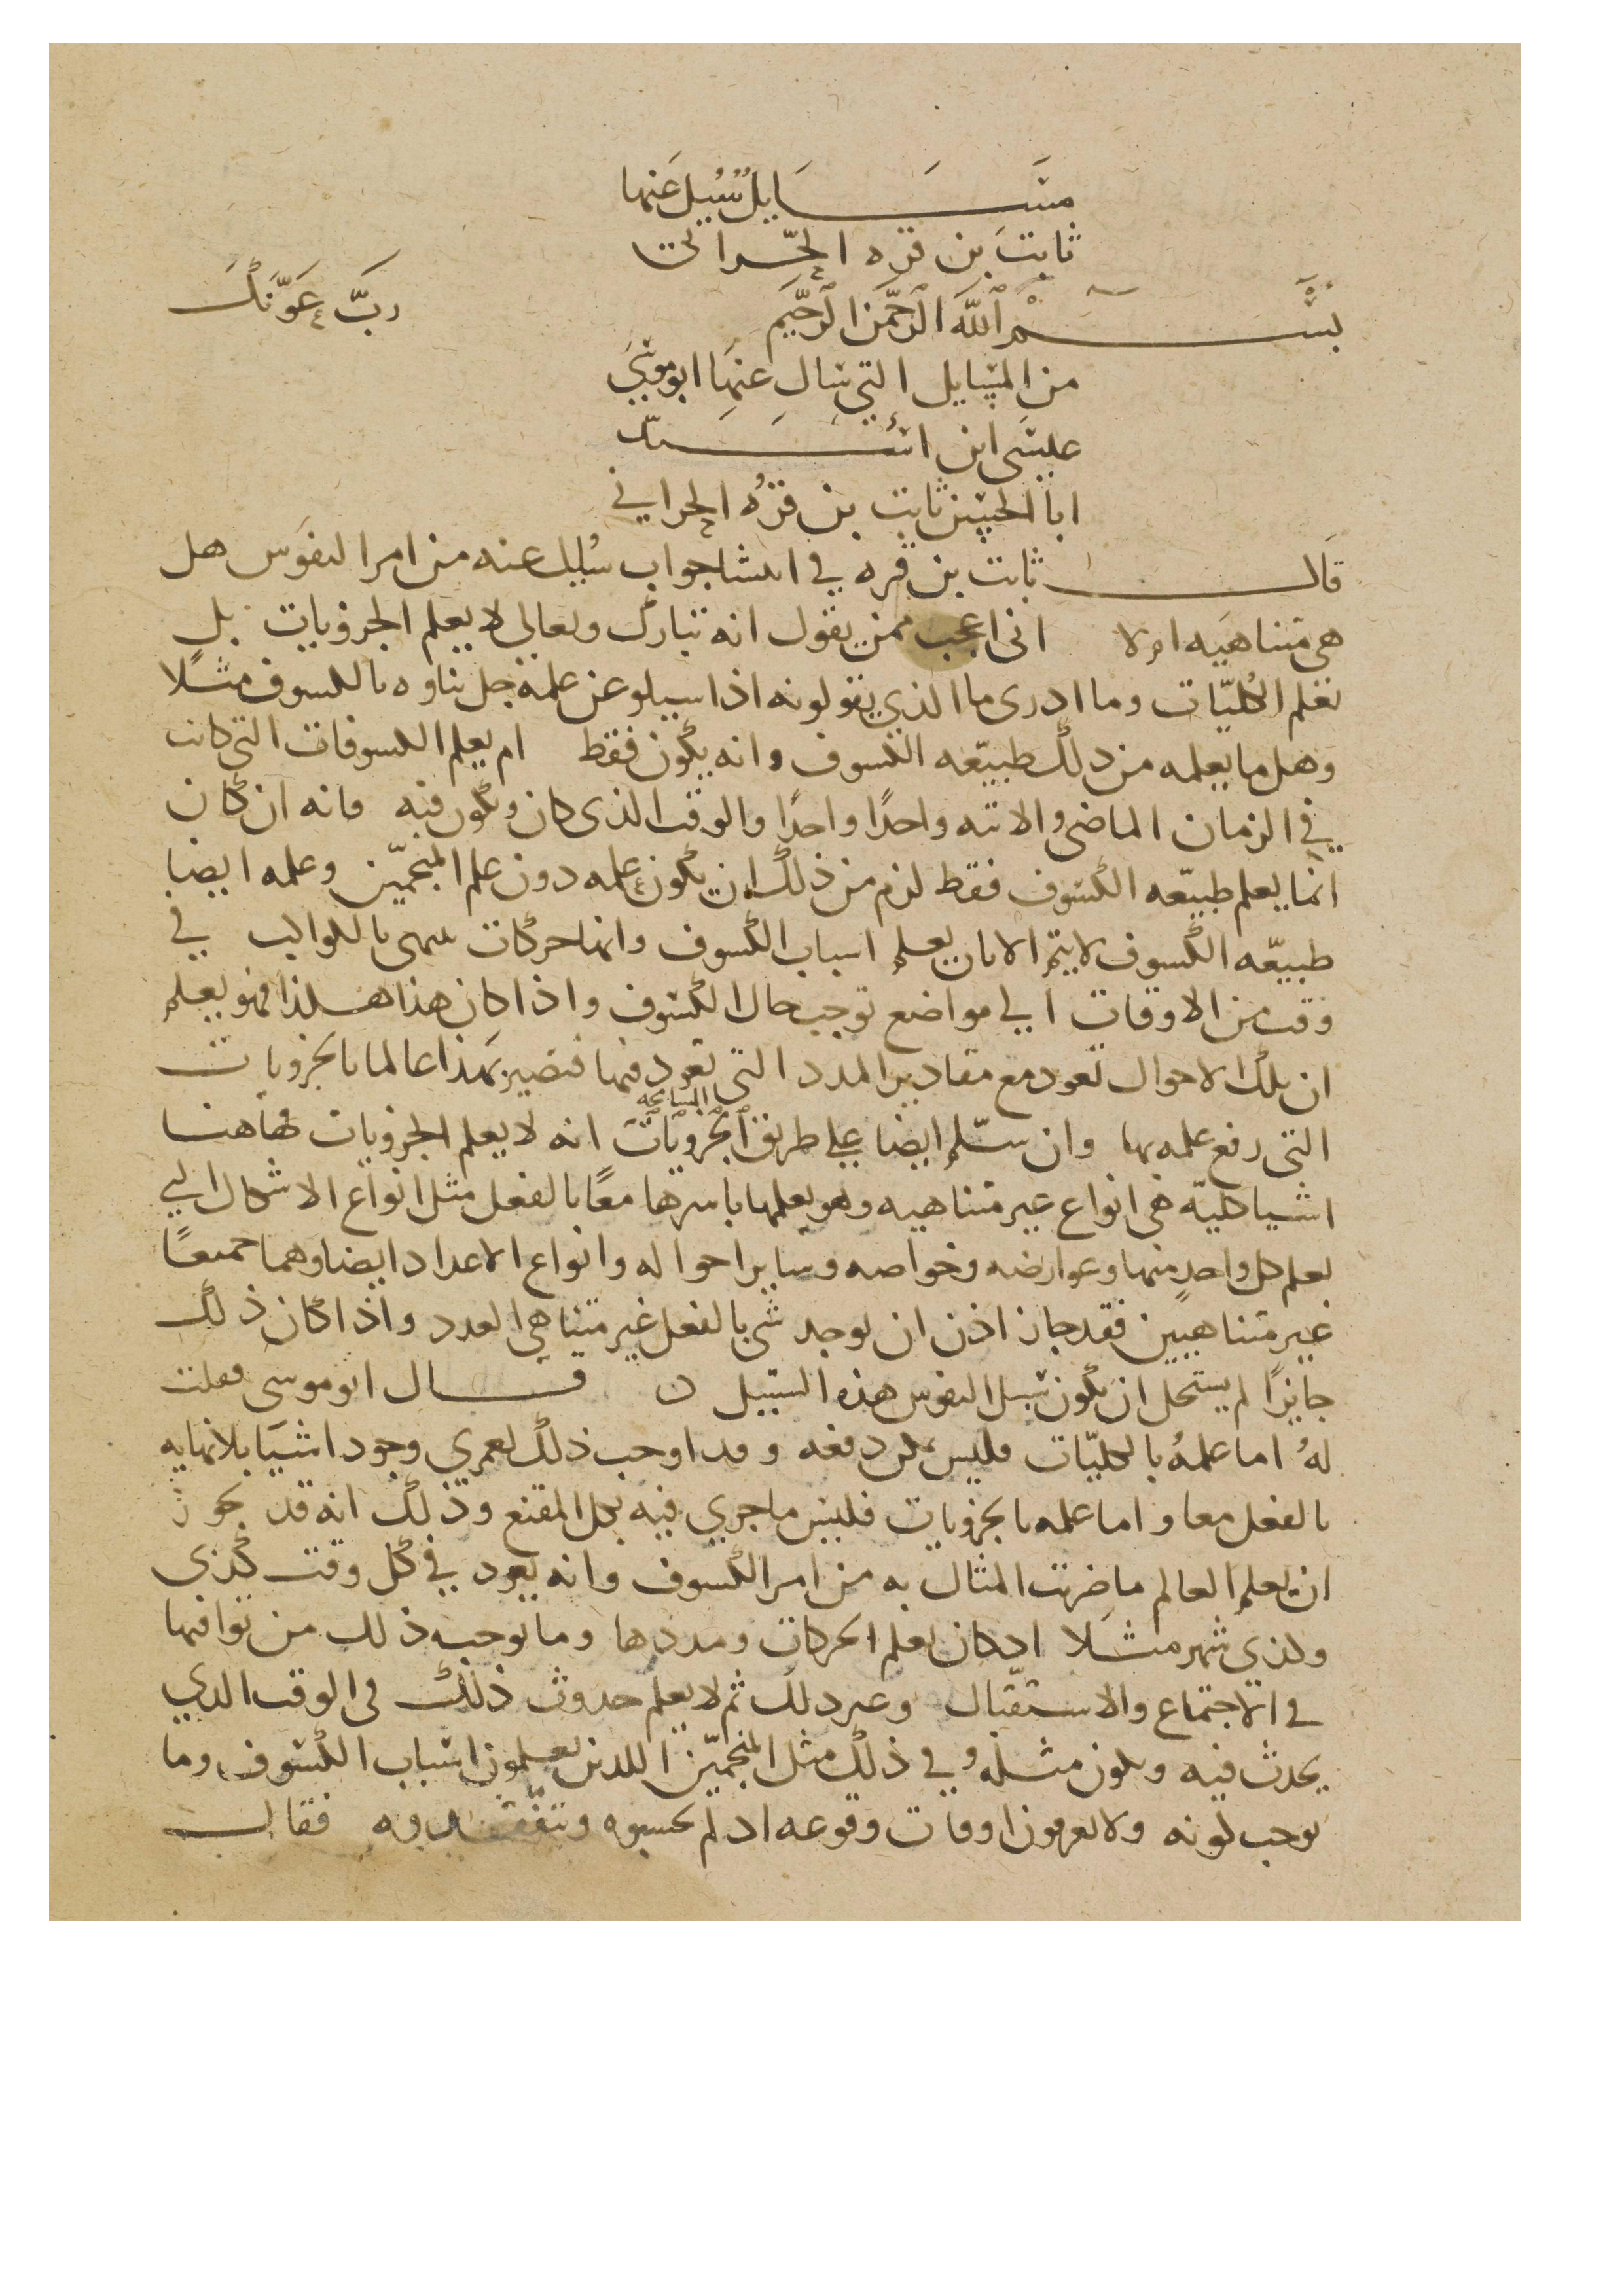 مســـــايل سُيل عنها
ثابت بن قره الحرّاني
بســـــم الله الرحمن الرحيم رب عونك
من المسايل التي سال عنها ابو موسى
عيسى ابن اســـــيد
ابا الحسن ثابت بن قره الحراني
قالـــــ ثابت بن قره في انشا جواب سُيل عنه من امر النفوس هل
هي متناهيه او لا انى اعجب ممن يقول انه تبارك وتعالى لا يعلم الجزويات بل
يعلم الكُليّات وما ادرى ما الذي يقولونه اذا سيلو عن علمه جل ثناوه بالكسوف مثلًا
وهل ما يعلمه من ذلك طبيعّه الكسوف وانه يكون فقط ام يعلم الكسوفات التي كانت
في الزمان الماضي والاتيه واحدًا واحدًا والوقت الذى كان ويكون فيه فانه ان كان
انما يعلم طبيعّه الكسوف فقط لزم من ذلك ان يكون علمه دون علم المنجمّين وعلمه ايضا
طبيعّه الكسوف لا يتم الا بان يعلم اسباب الكسوف وانها حركات تنتهى بالكواكب في
وقت من الاوقات الي مواضع توجب حال الكسوف واذا كان هذا هكذا فهو يعلم
ان تلك الاحوال تعود مع مقادير المدد التي تعود فيها فتصير بهذا عالما بالجزويات
التى رفع علمه بها وان سلّم ايضا علي طريق الجزويات المسامحه انه لا يعلم الجزويات فهاهنا
اشيا كليّه هي انواع غير متناهيه وهو يعلمها باسرها معًا بالفعل مثل انواع الاشكال الي
يعلم كل واحدٍ منها وعوارضه وخواصه وساير احواله وانواع الاعداد ايضا وهما جميعًا
غير متناهيين فقد جاز اذن ان يوجد شي بالفعل غير متناهي العدد واذا كان ذلك
جايزًا لم يستحل ان يكون سبيل النفوس هذه السبيل ن قـــال ابو موسى فقلت
لهُ اما علمهُ بالكليّات فليس يمكن دفعه وقد اوجب ذلك لعمري وجود اشيا بلا نهايه
بالفعل معا واما علمه بالجزويات فليس ما جري فيه بكل المقنع وذلك انه قد يجوز
ان يعلم العالم ما ضربت المثال به من امر الكسوف وانه يعود في كل وقت كذي
وكذي شهر مثلا اذ كان يعلم الحركات ومددها وما يوجبه ذلك من توافيها
في الاجتماع والاستقبال وغير ذلك ثم لا يعلم حدوث ذلك في الوقت الذي
يحدث فيه ويكون مثله في ذلك مثل المنجمّين اللذين يعلمون اسباب الكسوف وما
يوجب كونه ولا يعرفون اوقات وقوعه اذ لم يحسبوه ويتفّقدوه فقالـــــ